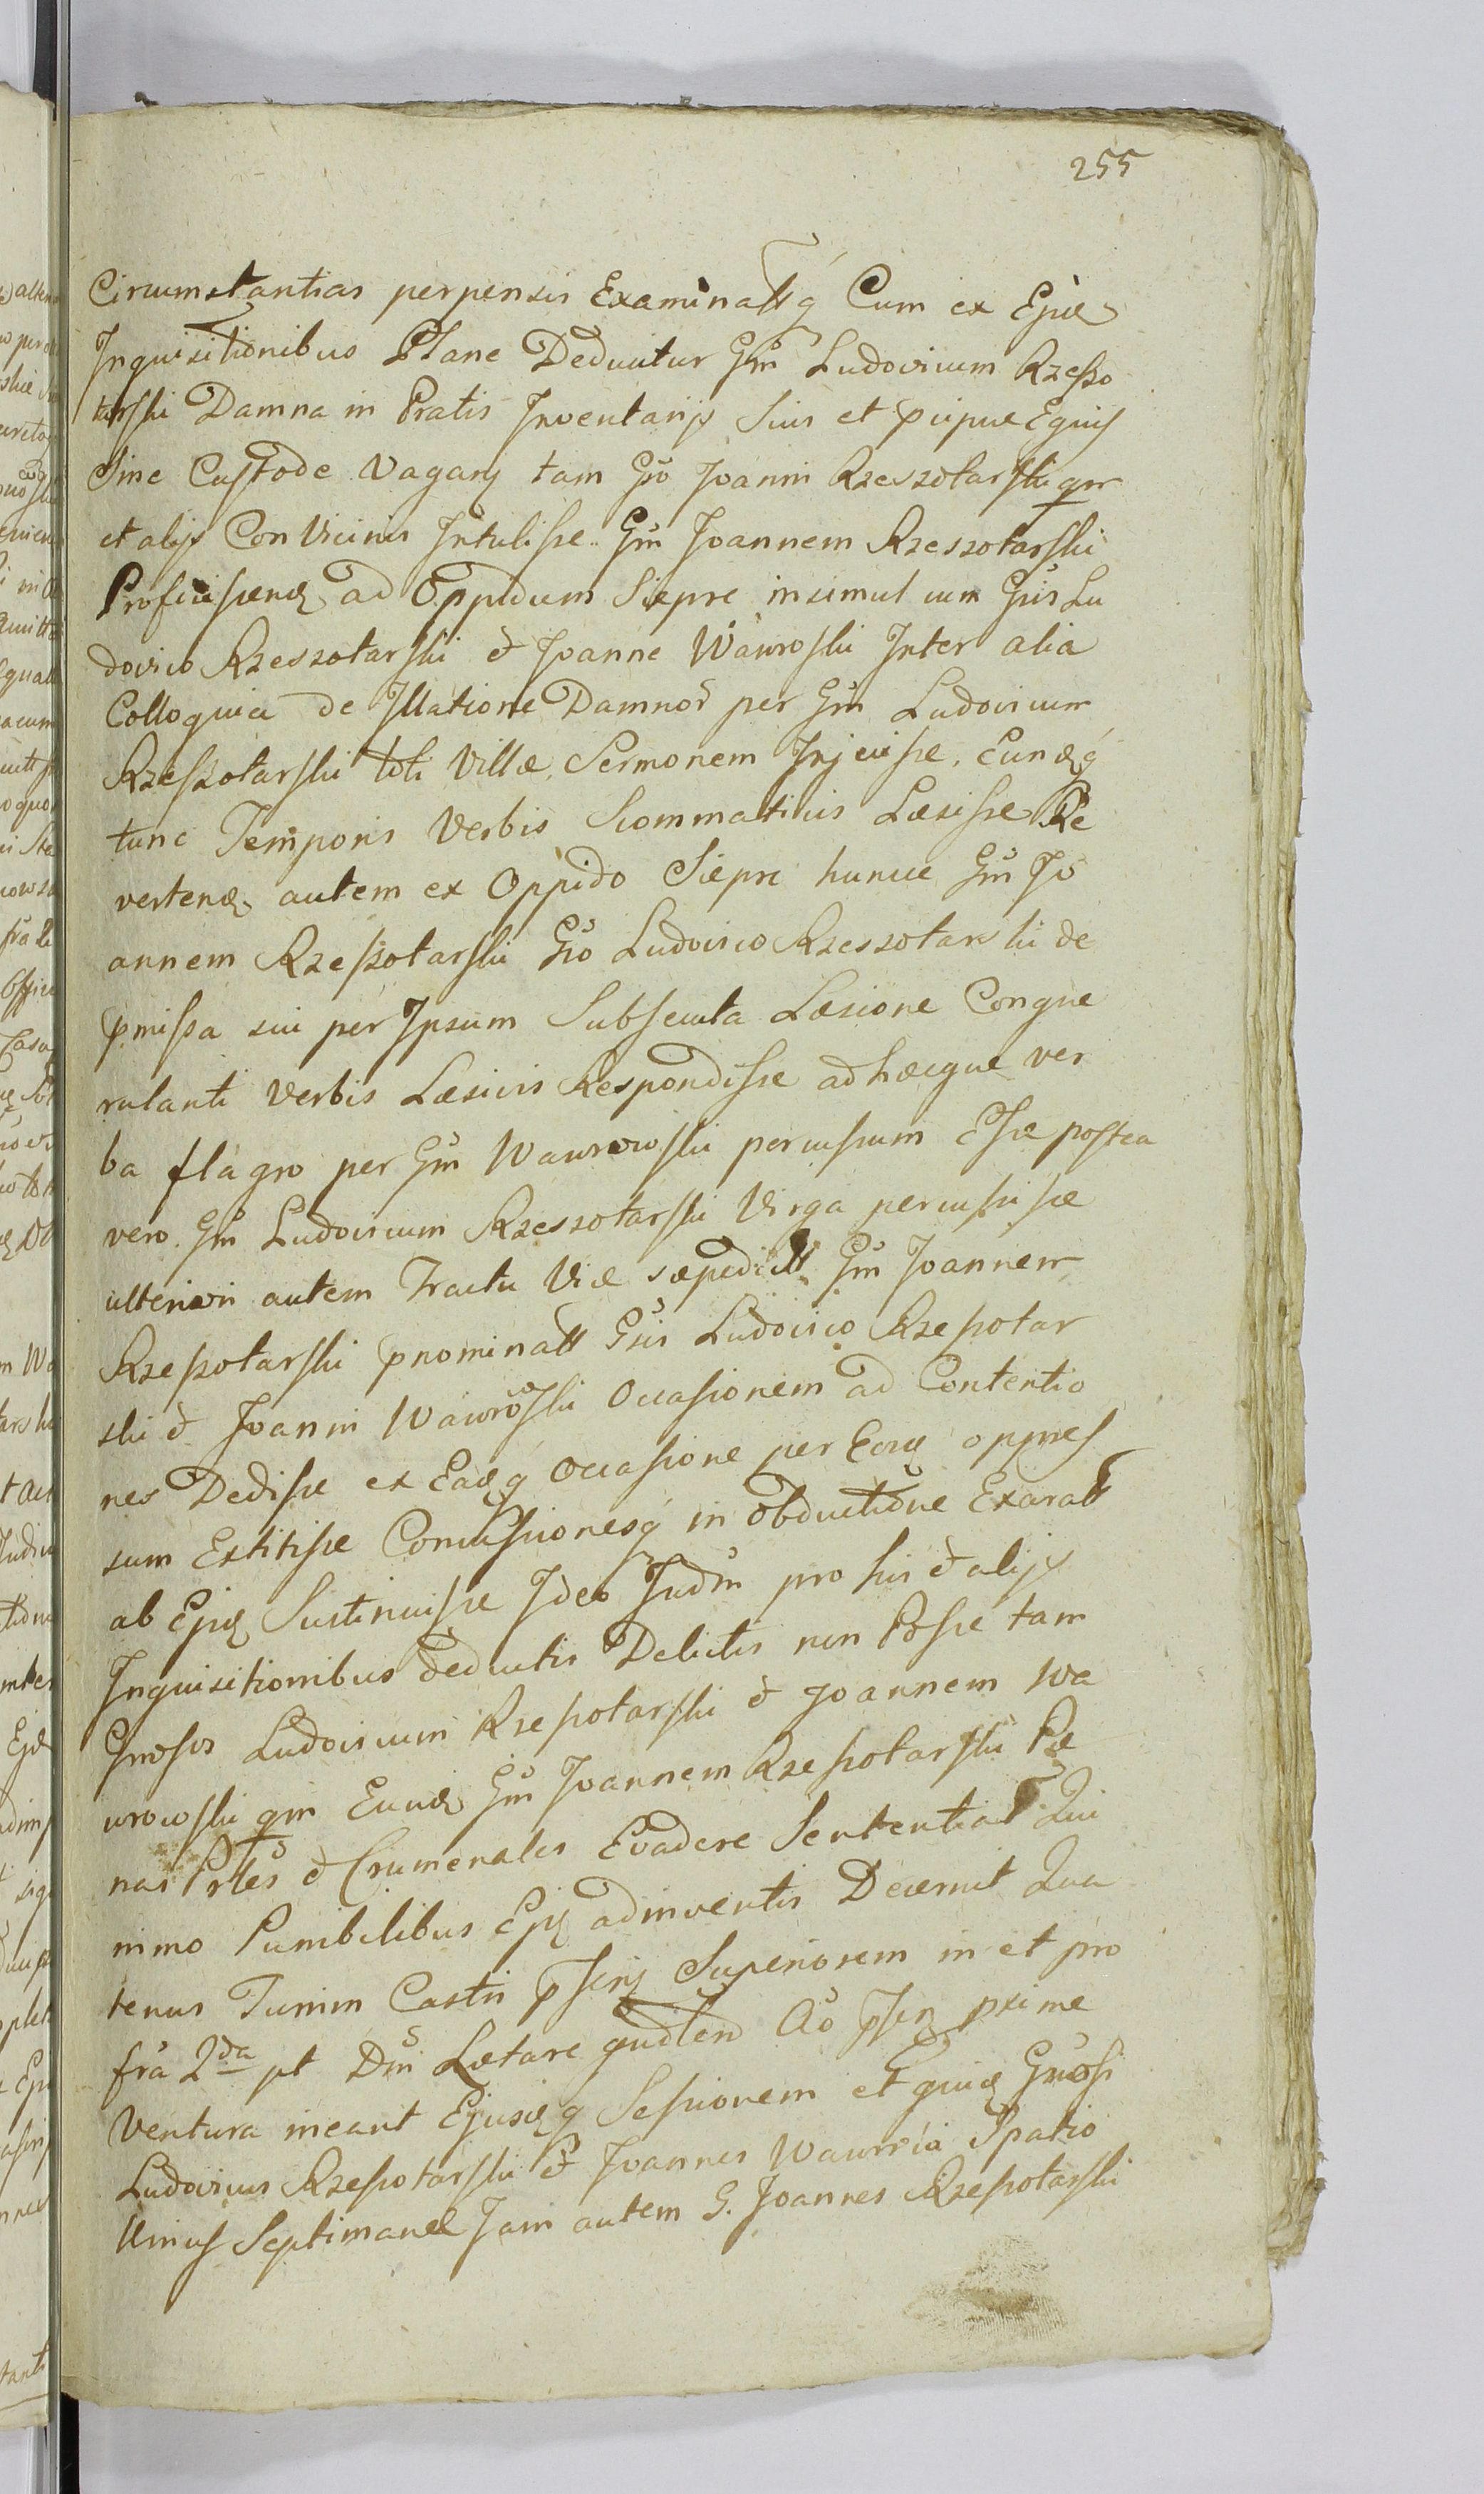 255
Circumstantias perpensis Examinatt q Cum ex Ejusd
Inquisitionibus Plane Deducitur Gm Ludovicum Rzeszo
tarski Damna in Pratis Inventarijs Suis et pcipue Equis
Sine Custode Vagantj tam Gso Joanni Rzeszotarski qm
et alijs Con Vicinis Intulisse Gm Joannem Rzeszotarski
Proficiscend ad Oppidum Siepre insimul cum Gsis Lu
dovico Rzeszotarski et Joanne Wawroski Inter alia
Colloquia de Illatione Damnor per Gm Ludovicum
Rzeszotarski toti Villæ Sermonem Injecisse, Eundq
tunc Temporis Verbis Scommaticis Læsisse Re
vertend autem ex Oppido Siepre huncce Gm Jo
annem Rzeszotarski Gso Ludovico Rzeszotarski de
pmissa sui per Ipsum Subsecuta Læsione Conque
rulanti Verbis Læsivis Respondisse ad hæcque ver
ba flagro per Gm Wawrowski percussum Esse postea
vero Gm Ludovicum Rzeszotarski Virga percussisse
ulteriori autem Tractu Viæ sæpedictt Gm Joannem
Rzeszotarski pnominatt Gsis Ludovico Rzeszotar
ski et Joanni Wawroski Occasionem ad Contentio
nes Dedisse ex Eadq Occasione per Eosd oppres
sum Extitisse Concussionesq in obductione Exaratt
ab Ejsd Sustinuisse Ideo Judm pro his et alijs
Inquisitionibus deductis Delictis non Posse tam
Gnosos Ludovicum Rzeszotarski et Joannem Wa
wrowski qm Eund Gm Joannem Rzeszotarski Pæ
nas Prles et Crumenales Evadere Sententiat Qui
nimo Punibilibus Ejsd adinventis Decernit Qua
tenus Turrim Castri psentj Superiorem in et pro
fra 2da pt Dm Lætare qudlend Ao psen pxime
Ventura ineant Ejusdq Sessionem et quid Gnosi
Ludovicus Rzeszotarski et Joannes Wawria Spatio
Unius Septimanæ Jam autem G. Joannes Rzeszotarski